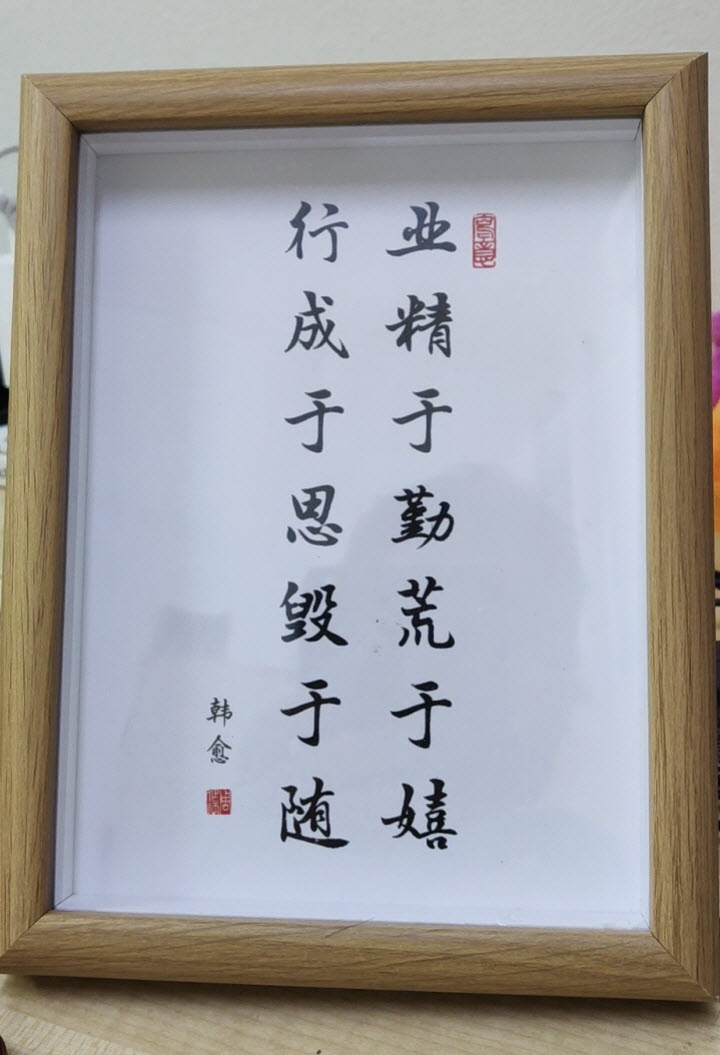 业精于勤荒于嬉
行成于思毁于随
韩愈